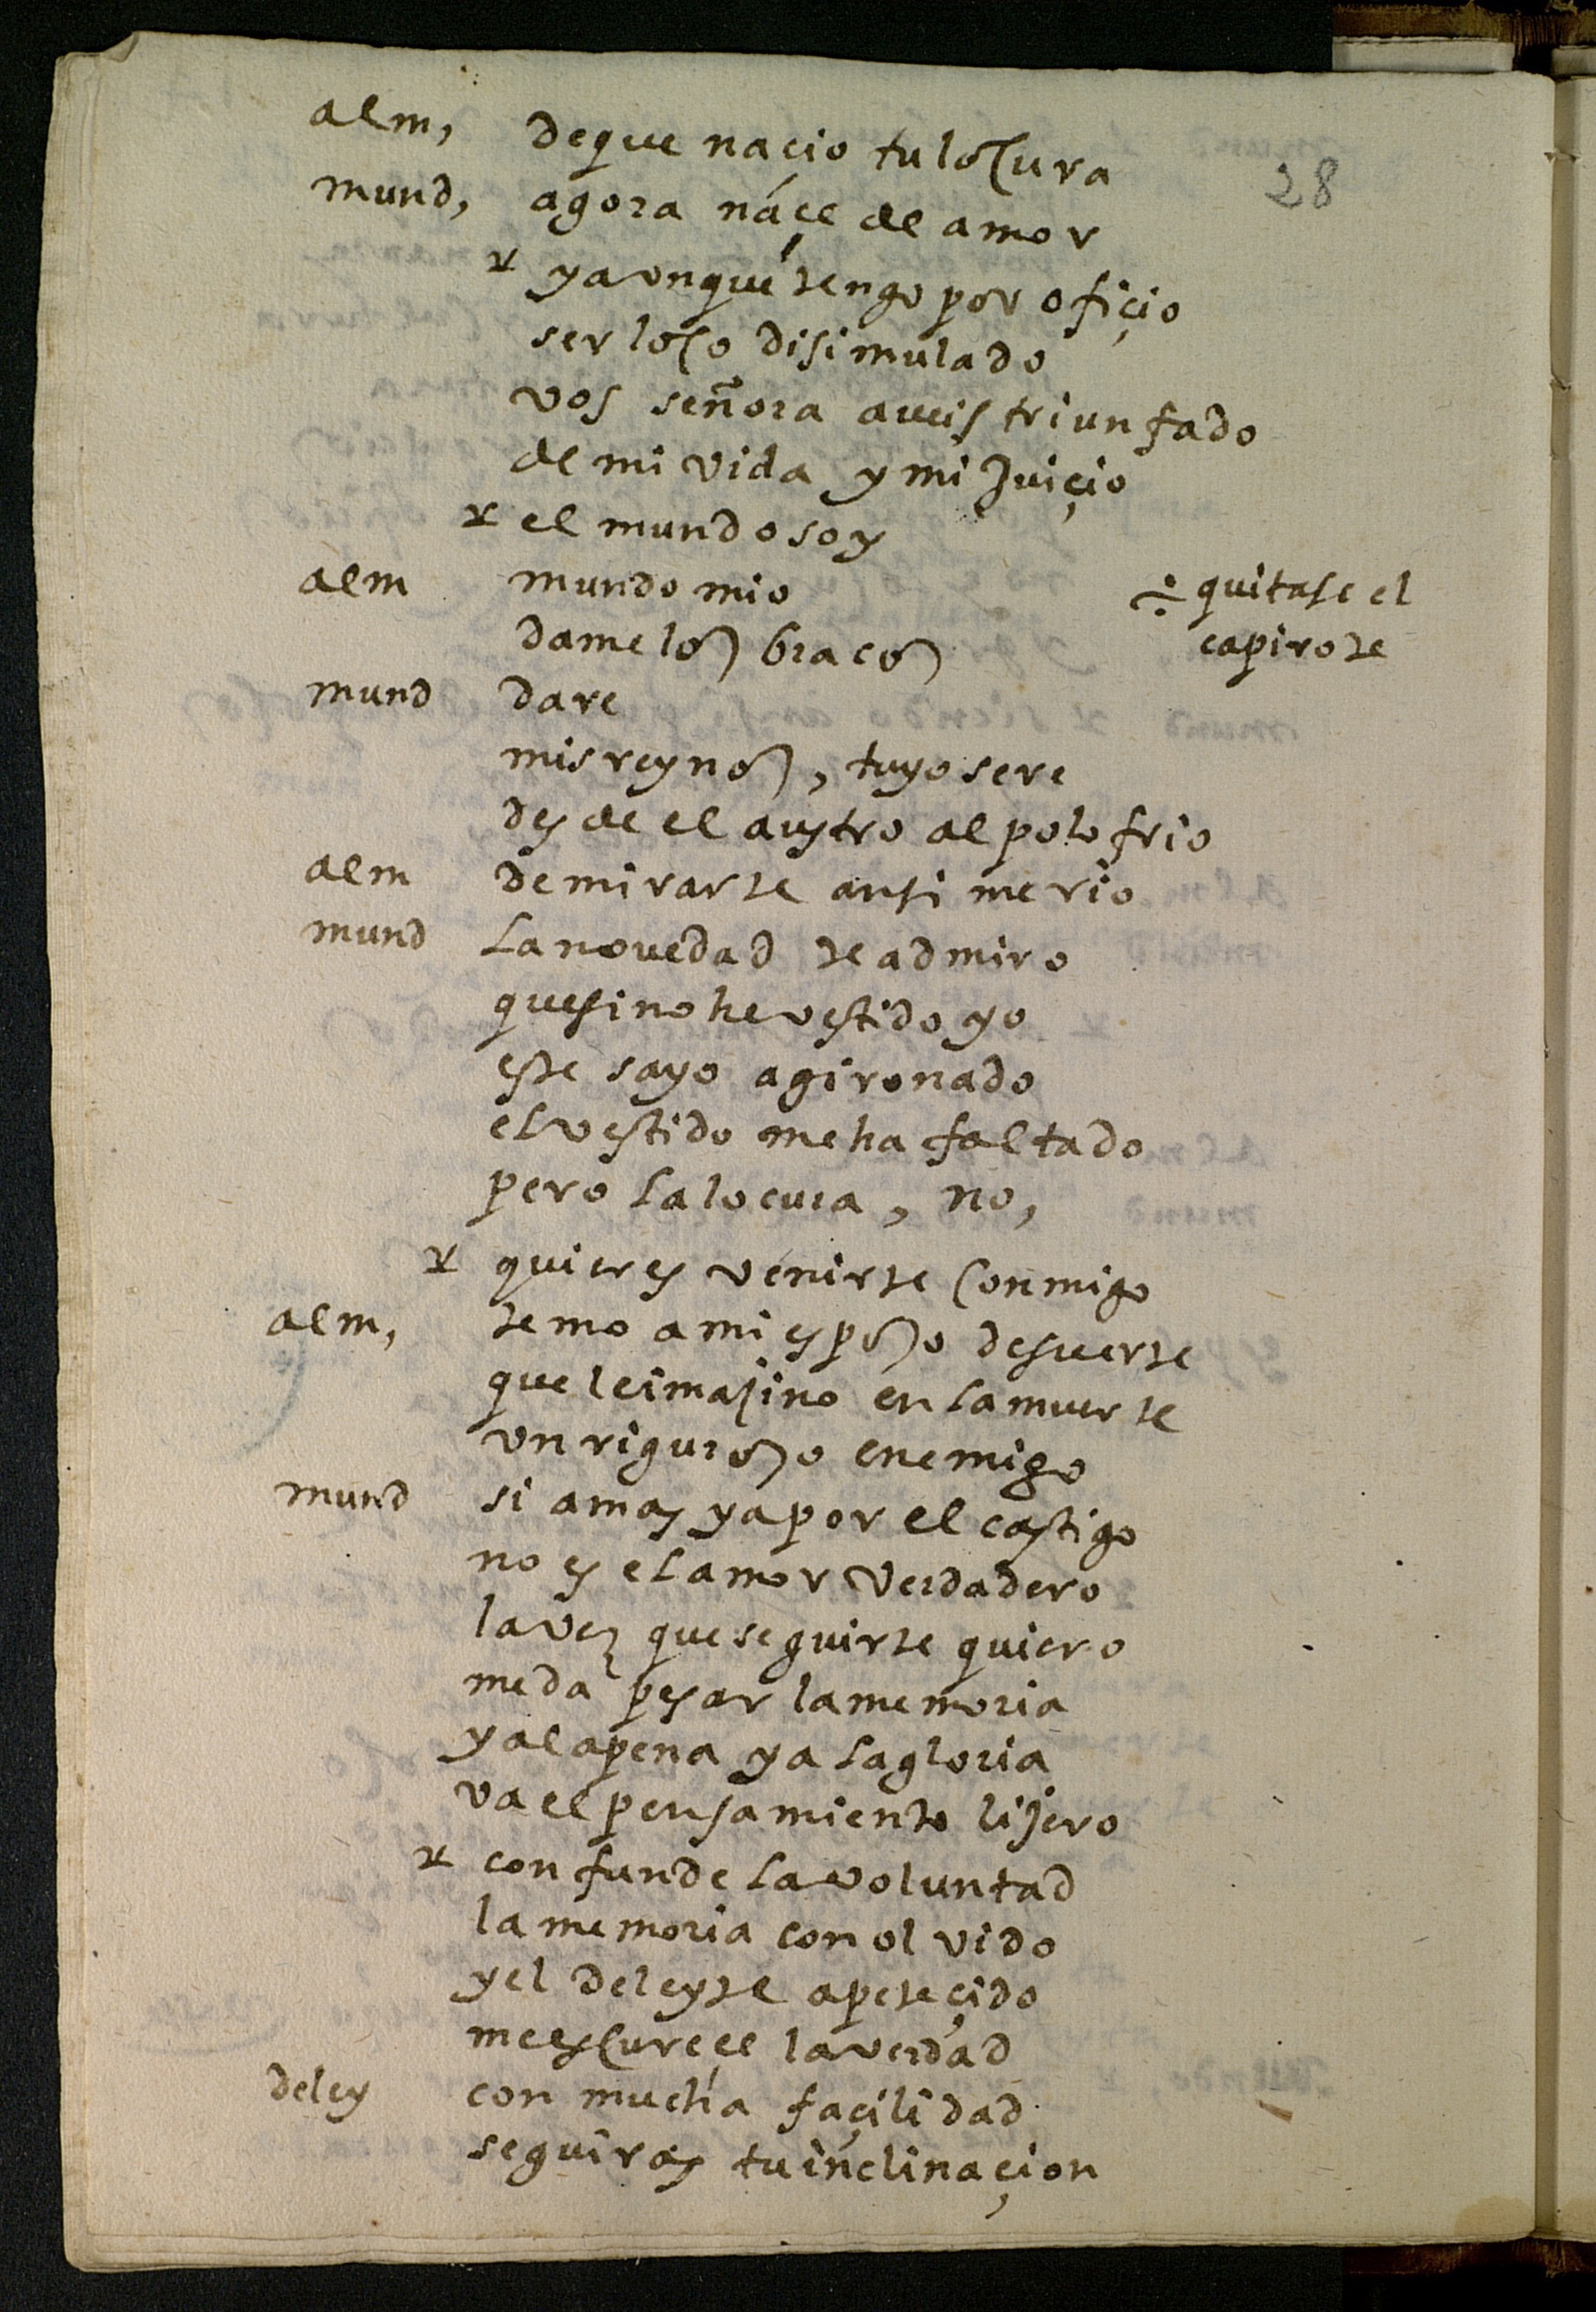 28
alm, deque naçio tu locura
mund, agora náçe de amor
ya vnqué tengo por ofiçio
ser loco disimulado
vos señora aueis triunfado
de mi vida y mi Juiçio
el mundo soy
alm mundo mio
÷ quitase el
capirote
dame los bracos
mund dare
mis reynos, tuyo sere
desde el austro al polo frio
alm de mirarte ansi me rio
mund la nouedad te admiro
que si no he vestido yo
este sayo agironado
el vestido me ha faltado
pero la locura, no,
quieres venirte conmigo
alm, temo a mi esposo de suerte
que le imajino en la muerte
vn riguroso enemigo
mund si amas ya por el castigo
no es el amor verdadero
la vez que seguirte quiero
me da pesar la memoria
y a la pena y a la gloria
va el pensamiento lijero
confunde la voluntad
la memoria con olvido
y el deleyte apeteçido
me escureçe la verdad
deley con mucha façilidad
seguiras tu inclinaçion